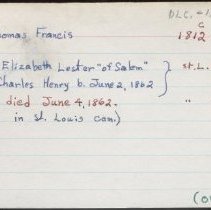 DLC. -1
C
homas Francis 1812
Elizabeth Lester "of Salem" } St. L.
Charles Henry b. June 2, 1862
died June 4, 1862. "
in St. Louis Cem.)
(o